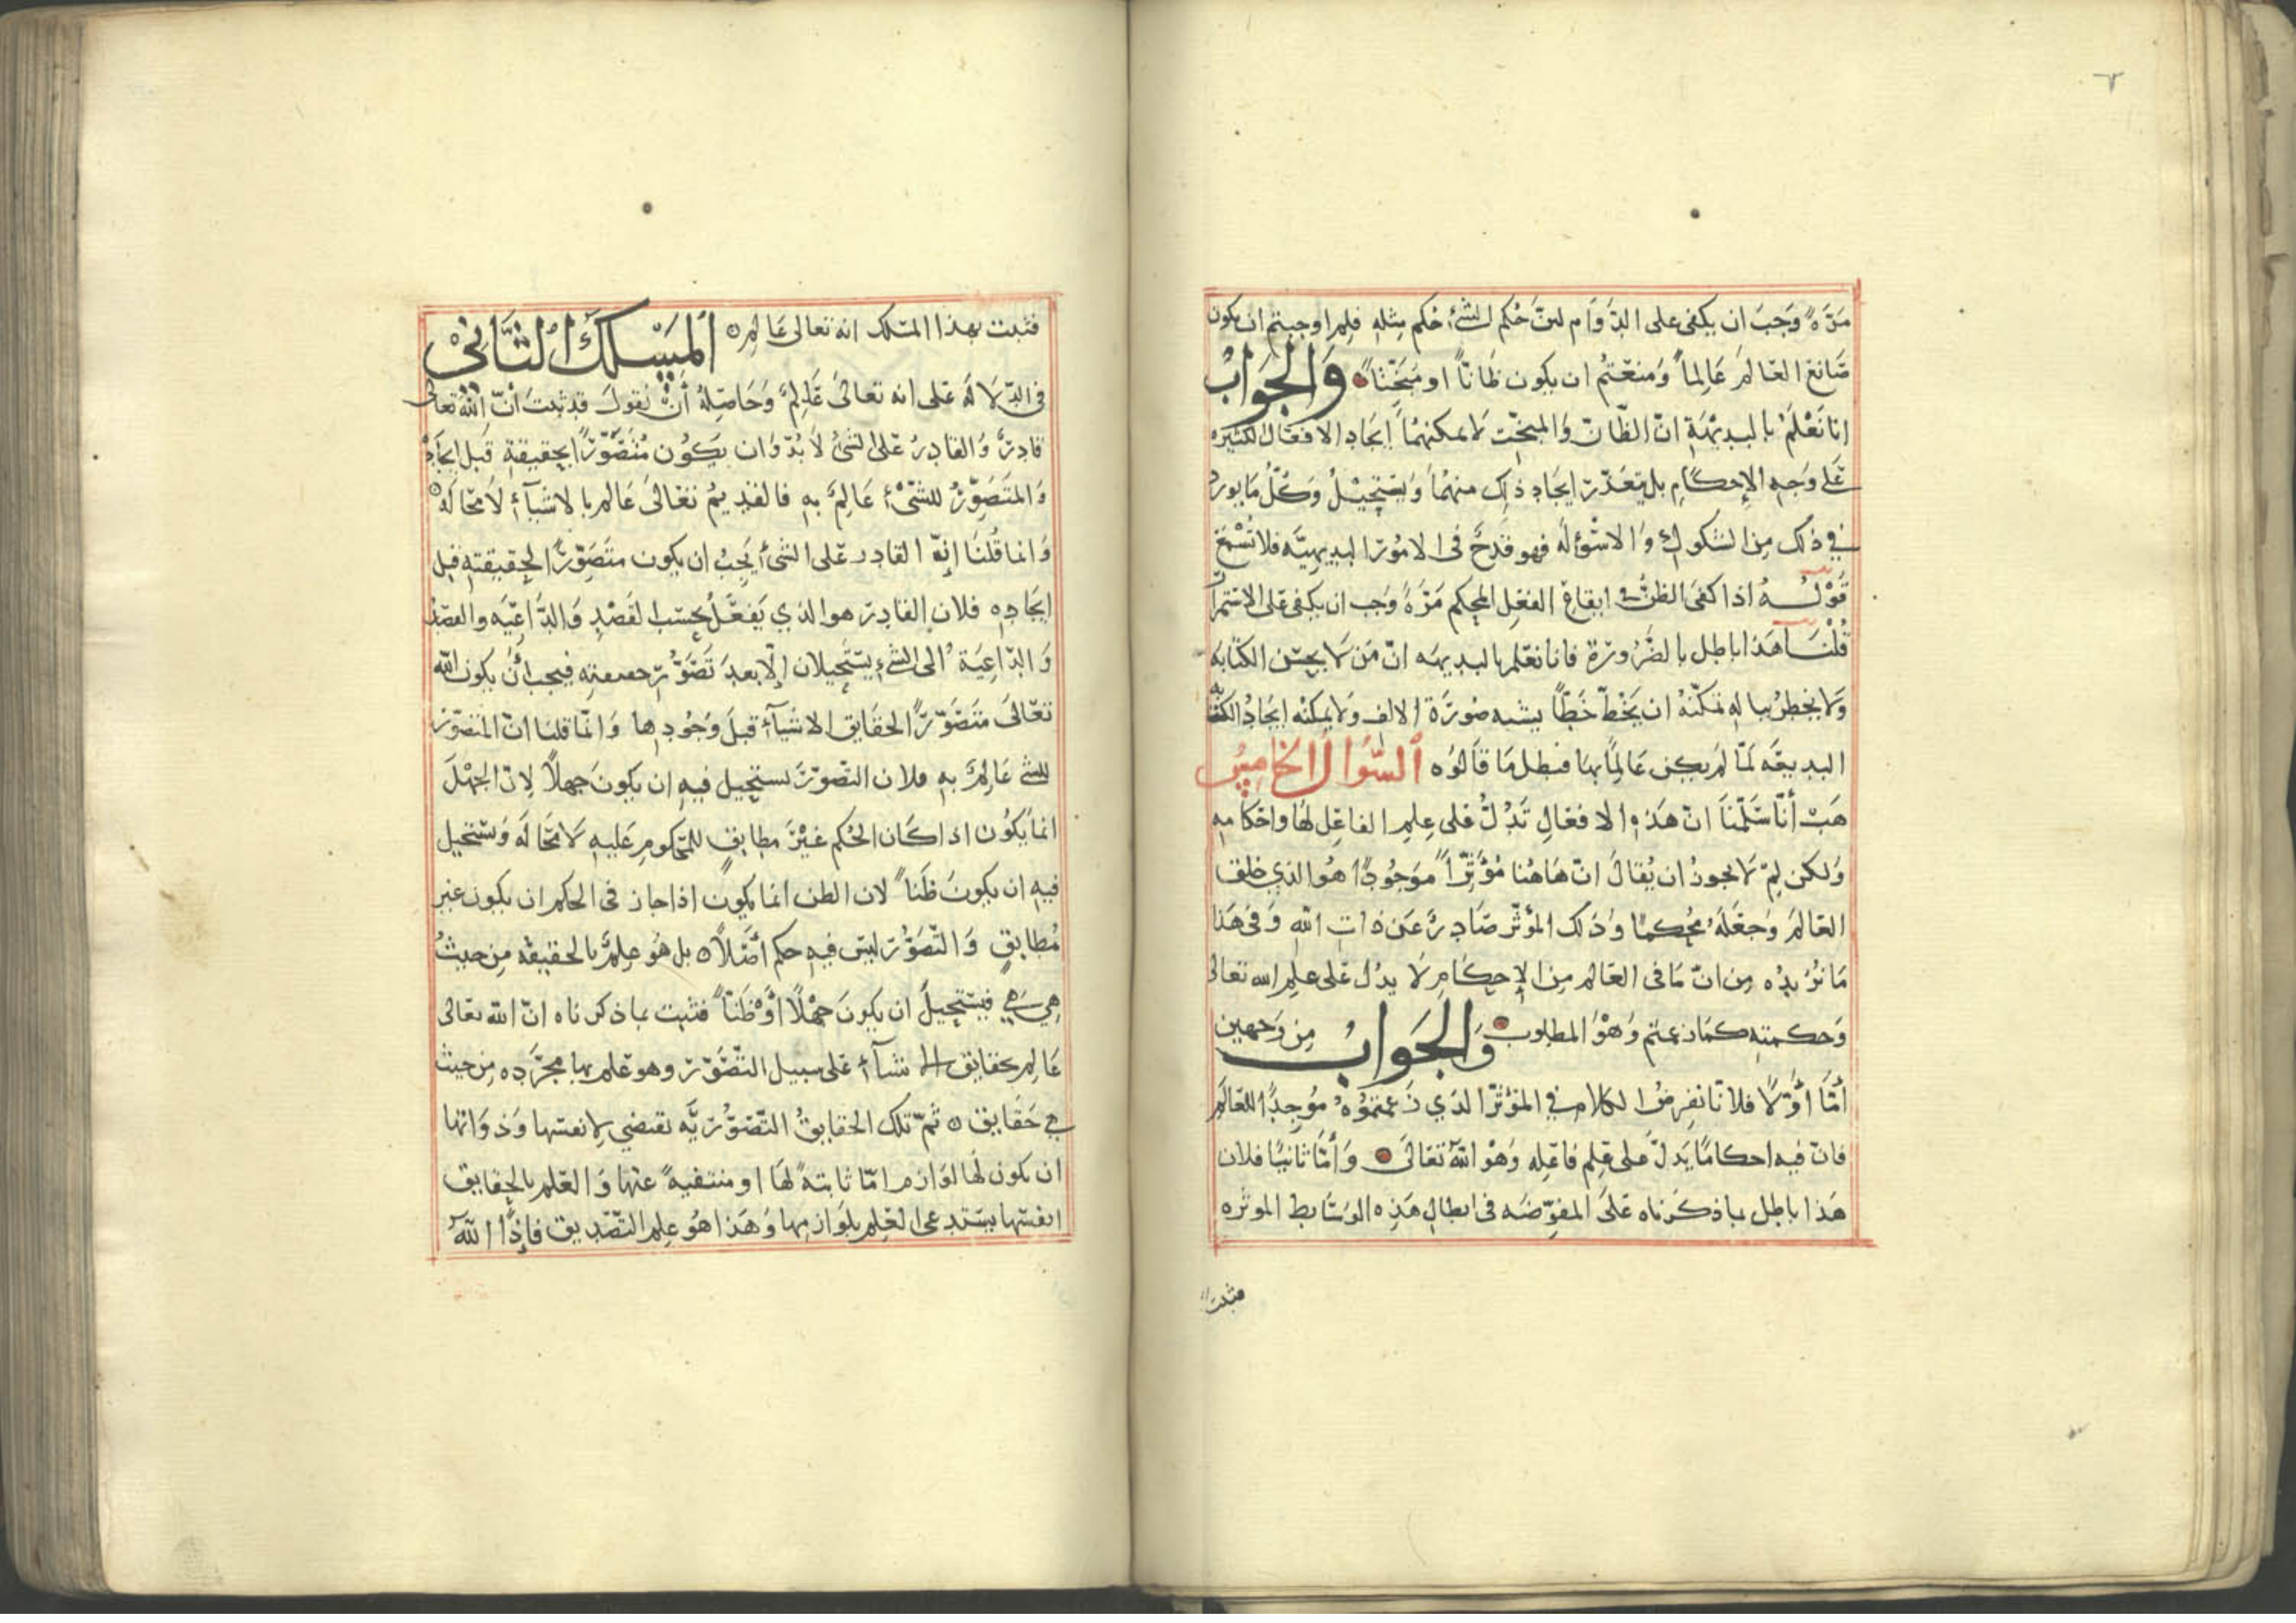 ٢
مرّةً وجب ان يكفى على الدّوام لانّ حُكم الشئ حُكم مثله فلم اوجبتم ان يكون
صَانع العَالم عَالِماً ومنعتم ان يكون ظَانّاً او مبخّتاً والجَوابُ
انا نَعْلَمُ بالبديهَةِ انّ الظّانّ والمبخّت لا يمكنهُما ايجَاد الافعَال الكثيره
عَلى وَجه الإحكام بل يتعذّر ايجاد ذلك منهُما ويَستحِيلُ وكلّ ما يورد
في ذلك من الشكوك والاسْوله فهو قدحٌ في الامور البديهيّه فلا تُسْمَع
قَوْلـــهُ اذا كفى الظنّ في ايقاع الفعل المحكم مَرّةً وَجب ان يكفى على الاستمرار
قُلْنَـا هَذا باطل بالضّرُورة فانا نعلم بالبديهه انّ مَن لا يحسن الكتابه
ولا يخطر بباله تمكنّهُ ان يَخُطّ خَطّاً يشبه صُورَة الالف ولا يمكنه ايجادُ الكتابة
البديعَه لَمّا لم يكن عَالِماً بها فبطل مَا قَالوُه السّؤال الخَامِسُ
هَب أنّا سَلّمنَا انّ هَذه الافعَالِ تَدُلُّ عَلى عِلمِ الفاعِل لهَا واحكامه
ولكن لِمَ لا يجوز ان يُقال انّ هَاهُنا مُؤثّراً مَوجُوداً هُو الذي خلق
العَالمَ وجَعَلَهُ مُحكمًا وذلك المؤثّر صَادِرٌ عَن ذات الله وَفي هَذا
مَا نُريده مِن انّ مَا في العَالم من الإحكام لا يدُل على علم الله تعالى
وَحكمته كما زعمتم وَهْوَ المطلوب وَالجَوابُ مِن وَجهين
أمّا أوّلًا فلانّا نفرض الكلام في المؤثّر الذي زَعمتموُه مُوجِداً للعَالَم
فانّ فيه احكامًا يَدلّ عَلى علم فاعِله وَهْو اللهُ تَعَالى وَأمّا ثانيًا فلان
هَذا باطل بما ذكَرناه عَلى المفوّضَه في ابطال هَذه الوسَايط الموثره
فثبت
فثبت بهذا المسلك انه تعالى عَالِم المَسْلكُ الثّانِيْ
في الدّلالَه عَلى انه تعالى عَالِمٌ وَحَاصِلهُ أنْ نقول قد ثبتَ أنّ اللهَ تعالى
قادِرٌ والقادِرُ عَلى الشئ لا بُدّ وان يَكُون مُتَصَوّراً لحقيقته قبل ايجَادِه
وَالمتَصَوّرُ للشئ عَالِمٌ به فالقديمُ تعَالىَ عَالم بالاشيآءِ لاَ محَالَه
وَانما قُلنَا إنّ القادر عَلى الشئ يَجبُ ان يكون متَصَوّراً لحقيقته قبل
ايجَادِه فلان القادر هو الذي يَفعَلُ بحَسب القَصْدِ وَالدّاعِيَه والقصدُ
وَالدّاعِيَةُ الى الشئ يَستَحيلان إلّا بعدَ تَصَوّر حقيقته فيجب أنْ يكون الله
تعَالىَ متَصَوّراً لحقَايق الاشيآء قبلَ وُجُودِها وَانّما قلنا انّ المتصوّر
للشئ عَالِمٌ به فلان التّصوّرَ يستحيل فيه ان يكونَ جهلاً لانّ الجهْلَ
انما يَكوُن اذا كَان الحُكم غيْرَ مطابقٍ للمحكوم عَليه لا محَالَه وَيستحيل
فيه ان يكونَ ظَنّاً لان الظن انما يكون اذا جاز في الحكم ان يكون غير
مُطابقٍ وَالتّصَوّر ليس فيه حكم أصْلاً بل هُو عِلمٌ بالحقيقه مِن حيثُ
هِيَ هِي فيستحيلُ ان يكونَ جهْلاً أوْ ظَنّاً فثبت بما ذكرناه انّ الله تعَالى
عَالِم بحقايق الاشيآء عَلى سبيل التّصَوّر وهو عَلم بها مجرّده مِن حيث
هي حَقَايق ثمّ تلك الحقايقُ التّصَوّريَّه تقتضي لانفسها وَذوَاتها
ان يكون لهَا لوَازم امّا ثابتهً لهَا او منتفيهً عنها وَالعلم بالحقايق
انفسها يستدعى العلم بلوَازمها وَهَذا هُو عِلم التّصديق فاذاً اللّهُ